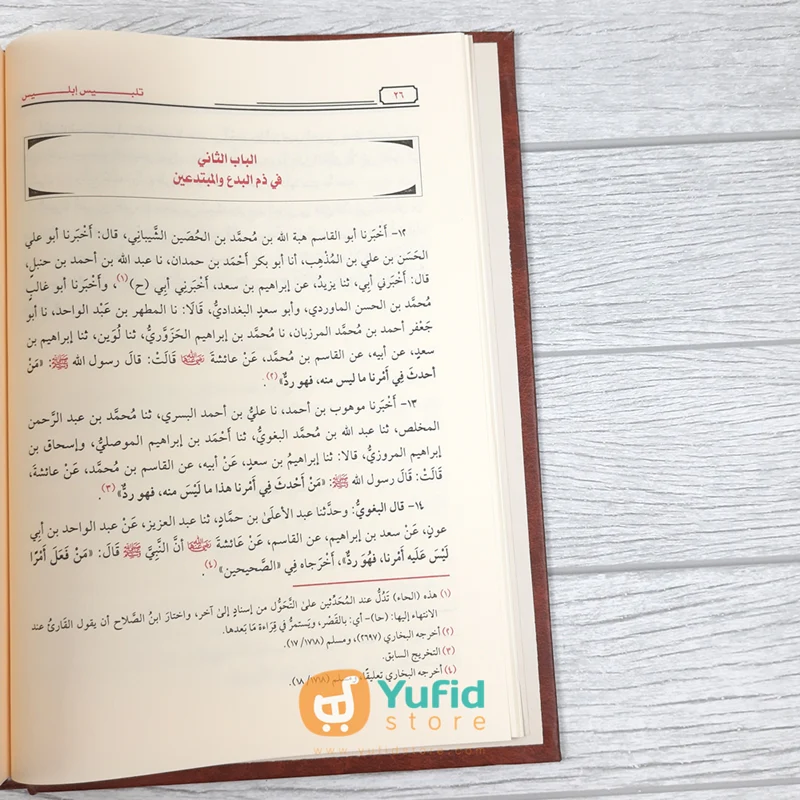 ٢٦
تلبيس إبليس
الباب الثاني
في ذم البدع والمبتدعين
١٢- أَخْبَرنا أبو القاسم هبة الله بن مُحمَّد بن الحُصَين الشَّيباني، قال: أَخْبَرنا أبو علي
الحَسَن بن علي بن المُذْهِب، أنا أبو بكر أَحْمَد بن حمدان، نا عبد الله بن أحمد بن حنبل،
قال: أَخْبَرني أبي، ثنا يزيدُ، عن إبراهيم بن سعد، أَخْبَرني أبي (ح) (١)، وأَخْبَرنا أبو غالبٍ
مُحمَّد بن الحسن الماوردي، وأبو سعدٍ البغداديُّ، قَالَا: نا المطهر بن عَبْد الواحد، نا أبو
جَعْفر أحمد بن مُحمَّد المرزبان، نا مُحمَّد بن إبراهيم الحَزَوَّريُّ، ثنا لُوَين، ثنا إبراهيم بن
سعدٍ، عن أبيه، عن القاسم بن مُحمَّد، عَنْ عائشةَ رضي الله عنها قَالَتْ: قالَ رسول الله ﷺ: «مَنْ
أحدثَ فِي أَمْرنا ما ليس منه، فهو ردٌّ» (٢).
١٣- أَخْبَرنا موهوب بن أحمد، نا عليُّ بن أحمد البسري، ثنا مُحمَّد بن عبد الرَّحمن
المخلص، ثنا عبد الله بن مُحمَّد البغويُّ، ثنا أَحْمَد بن إبراهيم الموصليُّ، وإسحاق بن
إبراهيم المروزيُّ، قالا: ثنا إبراهيمُ بن سعدٍ، عَنْ أبيه، عن القاسم بن مُحمَّد، عَنْ عائشةَ،
قَالَتْ: قَالَ رسول الله ﷺ: «مَنْ أَحْدثَ فِي أَمرنا هذا ما لَيْسَ منه، فهو ردٌّ» (٣).
١٤- قال البغويُّ: وحدَّثنا عبد الأعلَىٰ بن حمَّادٍ، ثنا عبد العزيز، عَنْ عبد الواحد بن أبي
عونٍ، عَنْ سعد بن إبراهيم، عن القاسم، عَنْ عَائشةَ رضي الله عنها أنَّ النَّبيَّ ﷺ قَالَ: «مَنْ فَعَلَ أَمْرًا
لَيْسَ عَلَيه أَمرنا، فهُوَ ردٌّ»، أَخْرَجاه فِي «الصَّحيحين» (٤).
(١) هذه (الحاء) تَدُلُّ عند المُحَدِّثين علىٰ التَّحَوُّل من إسنادٍ إلىٰ آخر، واختارَ ابنُ الصَّلاح أن يقول القَارِئُ عند
الانتهاء إليها: (حا)- أي: بالقَصْر، ويَستمرُّ في قِرَاءة مَا بَعدها.
(٢) أخرجه البخاري (٢٦٩٧)، ومسلم (١٧١٨/ ١٧).
(٣) التخريج السابق.
(٤) أخرجه البخاري تعليقًا، ومسلم (١٧١٨/ ١٨).
Yufid
store
www.yufidstore.com